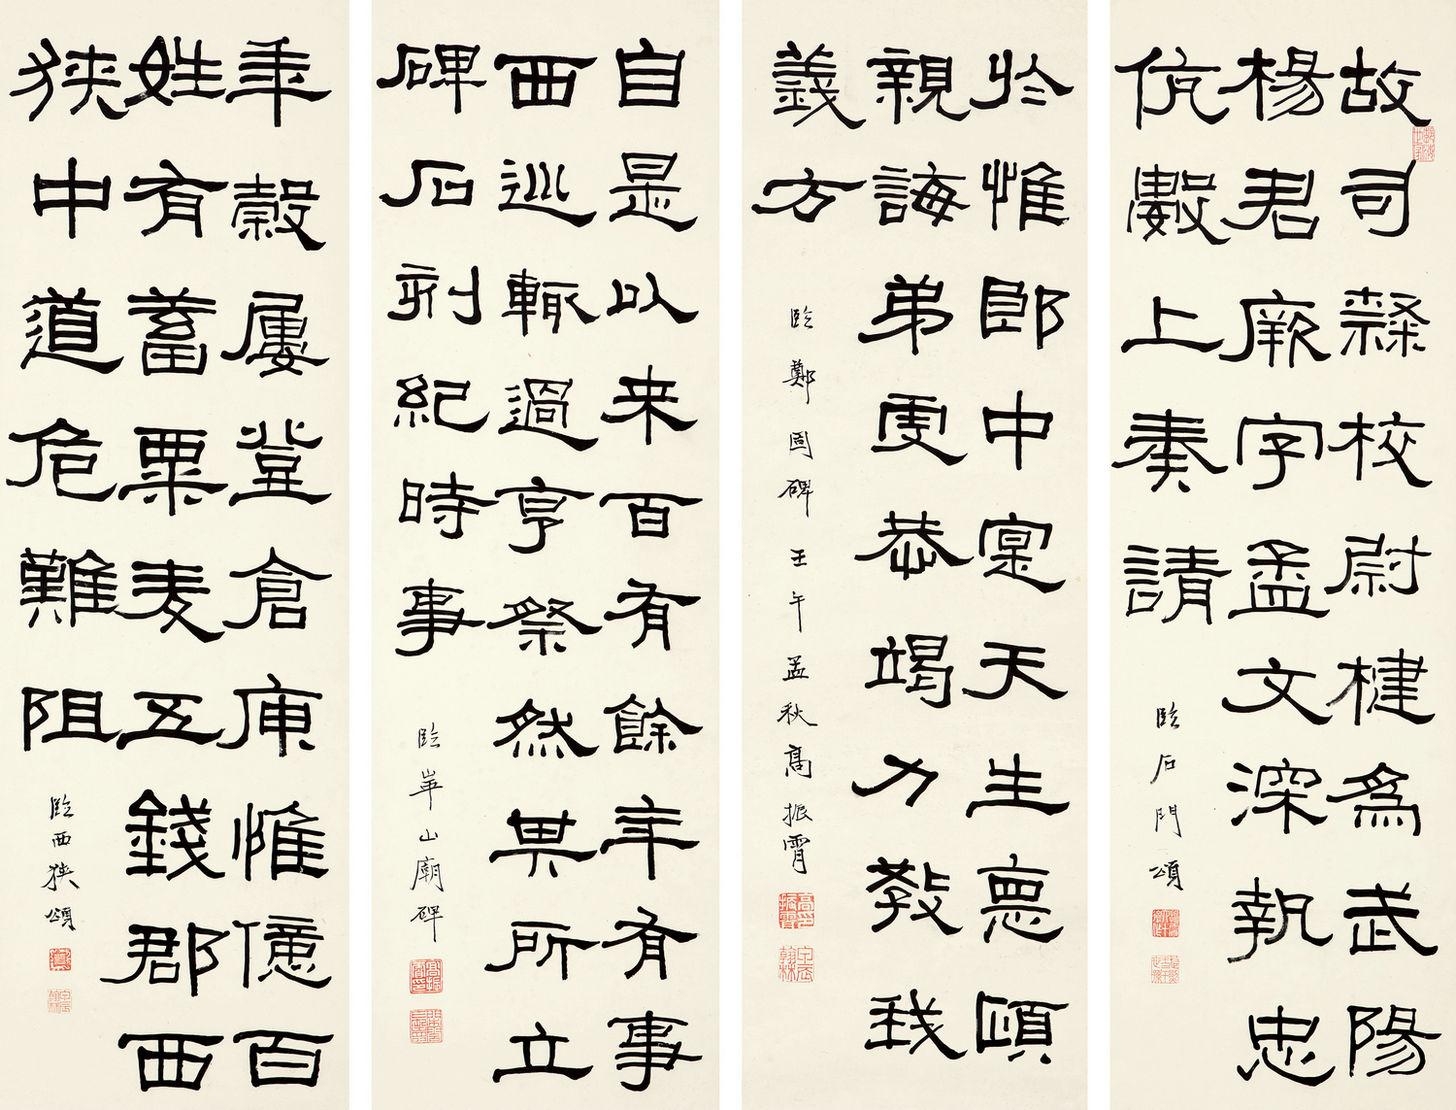 故司隸校尉楗為武陽
楊君厥字孟文深執忠
伉數上奏請
臨石門頌
於惟郎中寔天生悳頤
親誨弟虔恭竭力教我
義方
臨鄭固碑 壬午孟秋高振霄
自是以来百有餘年有事
西巡輒過亨祭然其所立
碑石刻紀時事
臨華山廟碑
年穀屢登倉庾惟億百
姓有蓄粟麦五錢郡西
狹中道危難阻
臨西狹頌